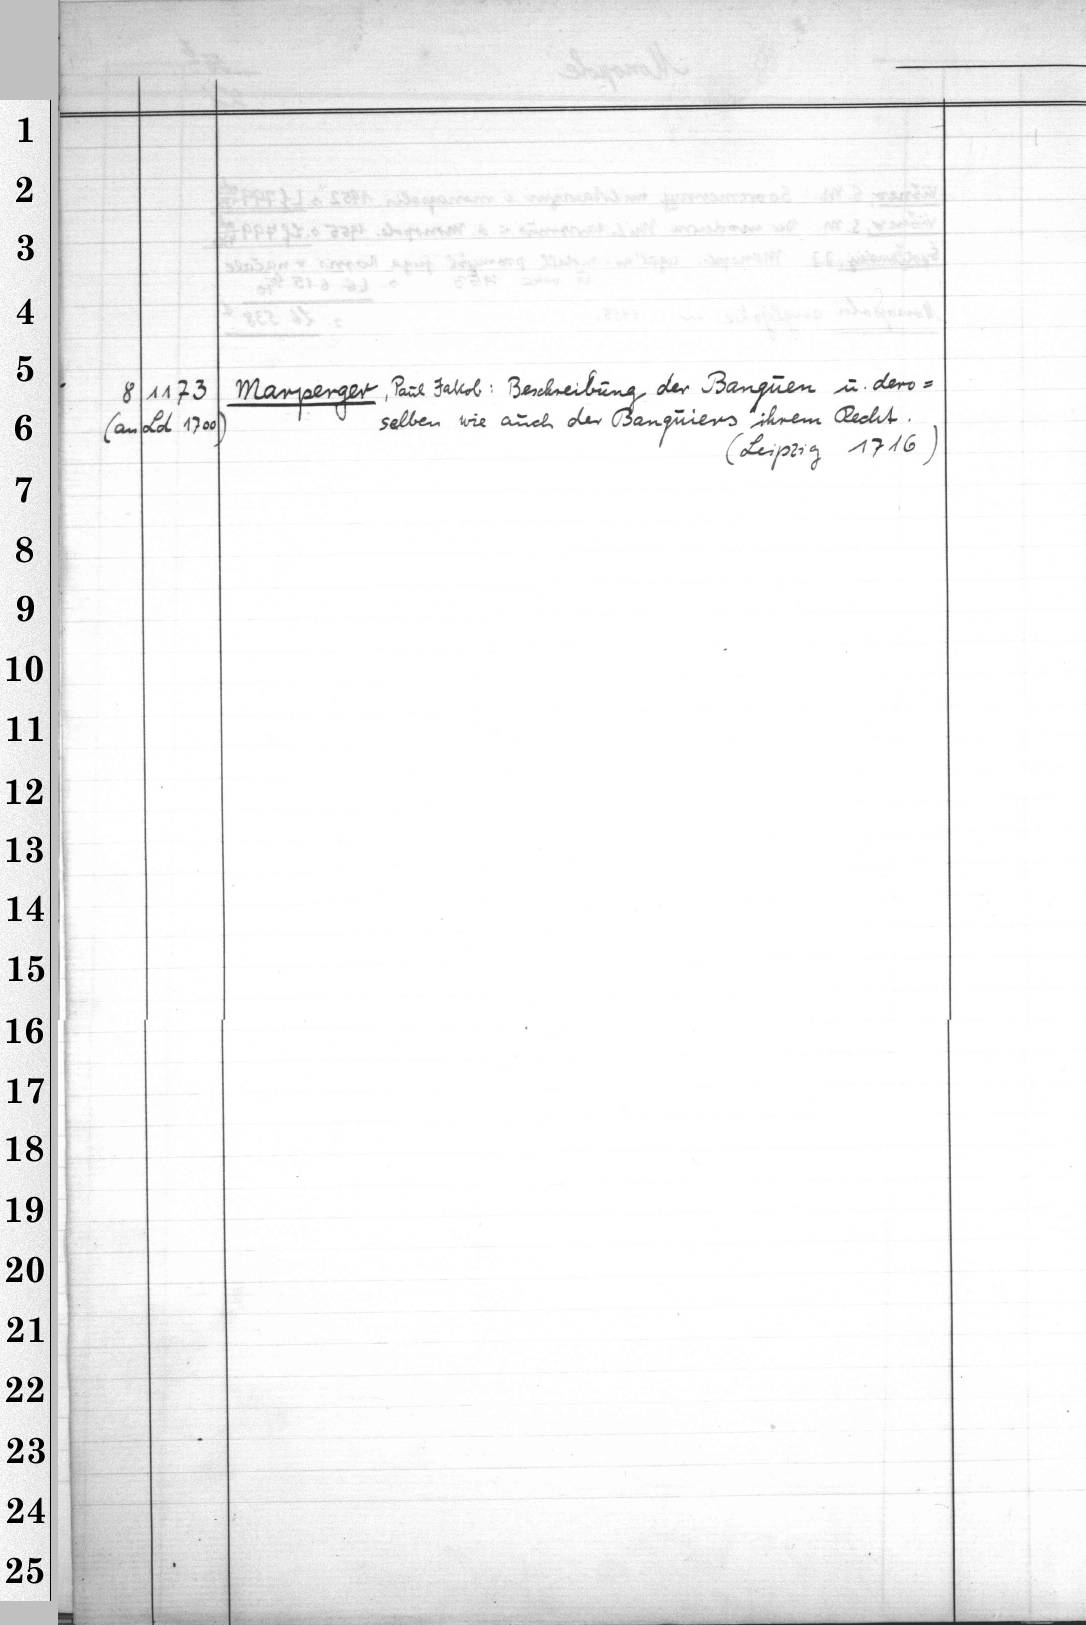 1
2
3
4
5
8 1173 Marperger, Paul Jakob: Beschreibung der Banquen u. dero=
6
(an Ld 1700) selben wie auch der Banquiers ihrem Recht.
(Leipzig 1716)
7
8
9
10
11
12
13
14
15
16
17
18
19
20
21
22
23
24
25